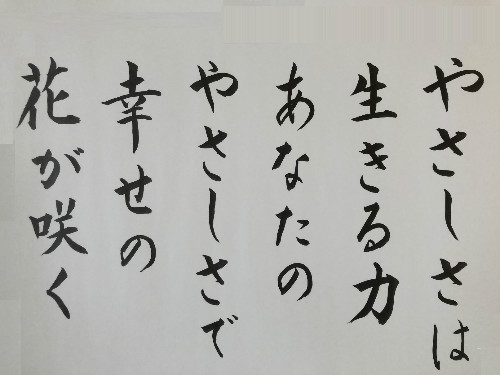 やさしさは
生きる力
あなたの
やさしさで
幸せの
花が咲く